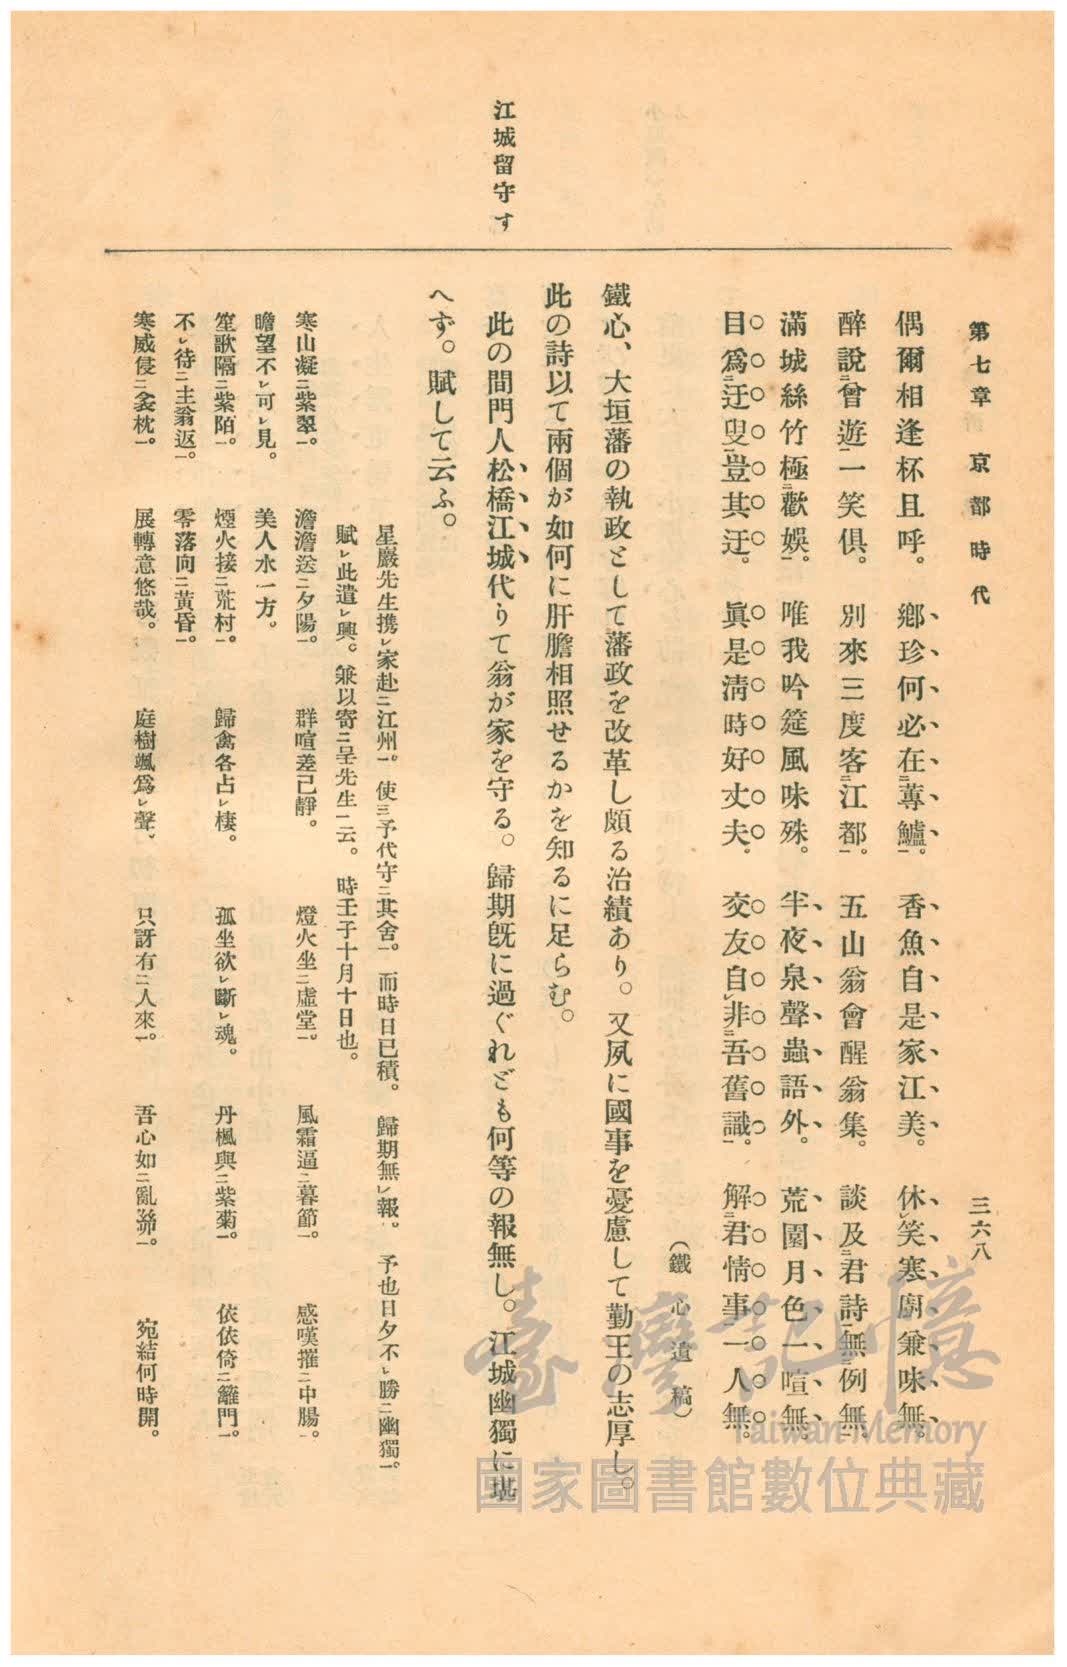 第七章 京都時代
三六八
江城留守す
偶爾相逢杯且呼。 鄕珍何必在二蓴鱸一。 香魚自是家江美。 休レ笑寒廚兼味無。
醉說二曾遊一一笑俱。 別來三度客二江都一。 五山翁會醒翁集。 談及二君詩一無二例無一。
滿城絲竹極二歡娛一。 唯我吟筵風味殊。 半夜泉聲蟲語外。 荒園月色一喧無。
目爲二迂叟一豈其迂。 眞是淸時好丈夫。 交友自レ非二吾舊識一。 解二君情事一一人無。
(鐵心遺稿)
鐵心、大垣藩の執政として藩政を改革し頗る治績あり。又夙に國事を憂慮して勤王の志厚し。
此の詩以て兩個が如何に肝膽相照せるかを知るに足らむ。
此の間門人松橋江城代りて翁が家を守る。歸期旣に過ぐれども何等の報無し。江城幽獨に堪
へず。賦して云ふ。
星巖先生携レ家赴二江州一。使三予代守二其舍一。而時日已積。歸期無レ報。予也日夕不レ勝二幽獨一。
賦レ此遣レ興。兼以寄二呈先生一云。時壬子十月十日也。
寒山凝二紫翠一。 澹澹送二夕陽一。 群喧差已靜。 燈火坐二虛堂一。 風霜逼二暮節一。 感嘆摧二中腸一。
瞻望不レ可レ見。 美人水一方。
笙歌隔二紫陌一。 煙火接二荒村一。 歸禽各占レ棲。 孤坐欲レ斷レ魂。 丹楓與二紫菊一。 依依倚二籬門一。
不レ待二主翁返一。 零落向二黃昏一。
寒威侵二衾枕一。 展轉意悠哉。 庭樹颯爲レ聲、 只訝有二人來一。 吾心如二亂絲一。 宛結何時開。
臺灣記憶
Taiwan Memory
國家圖書館數位典藏